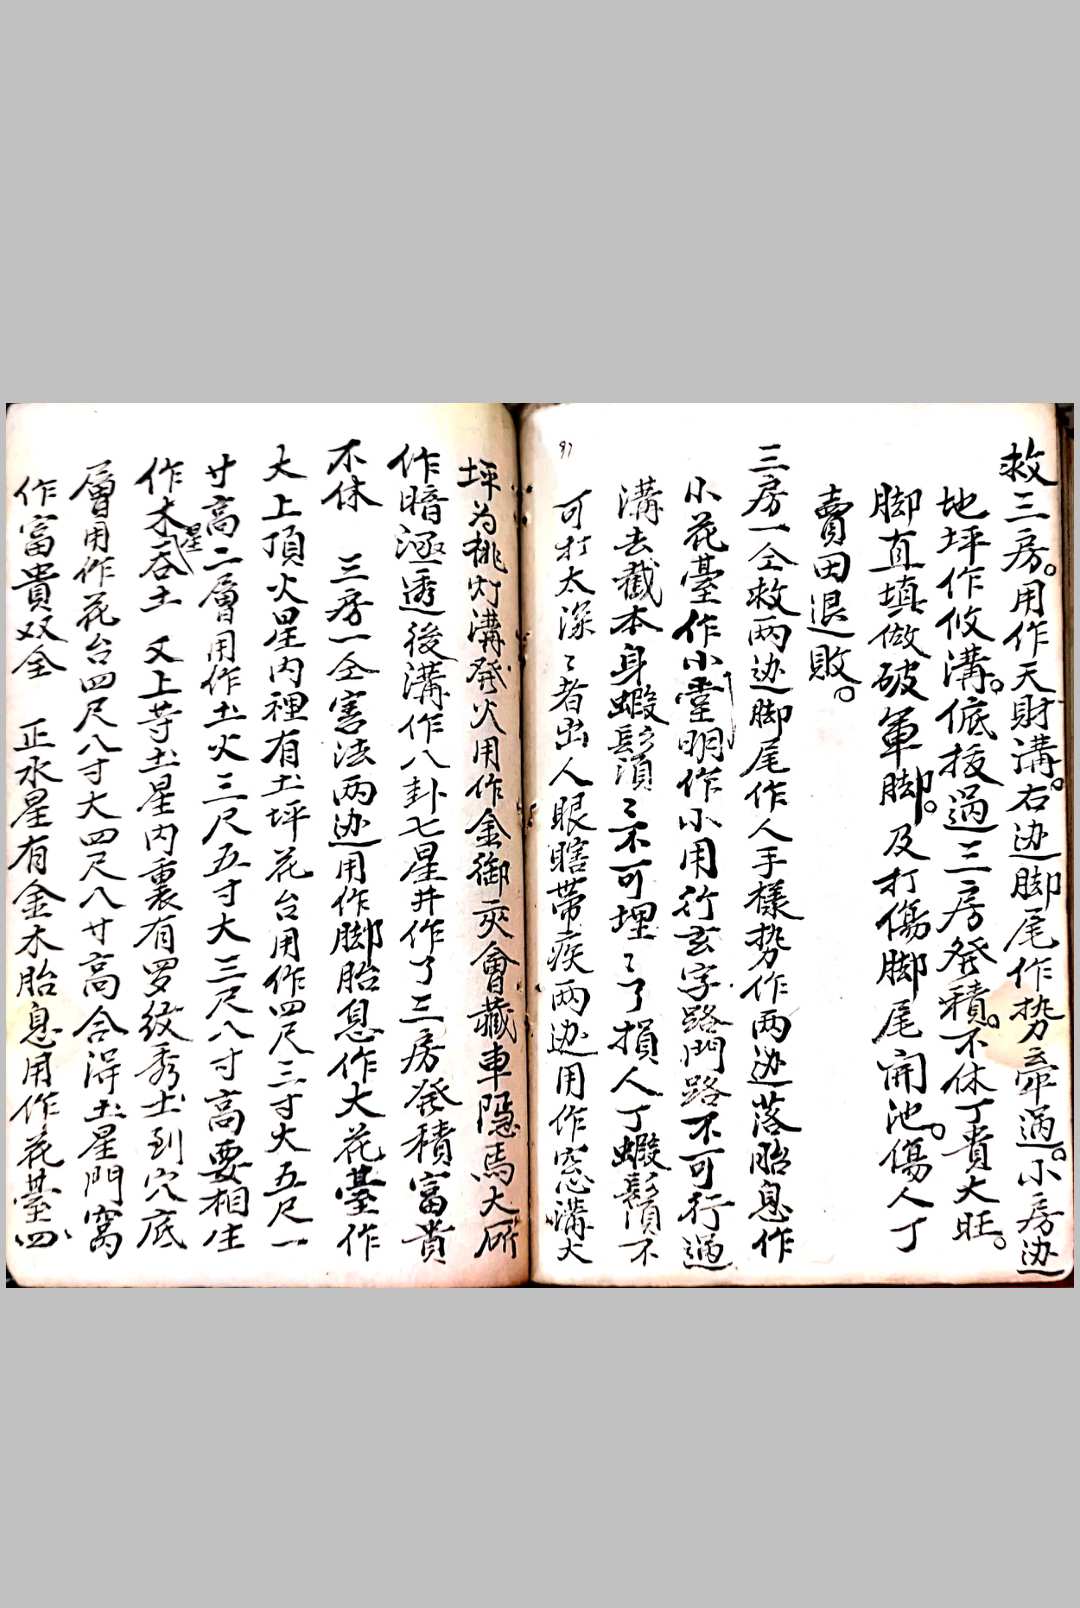 救三房。用作天財溝。右边脚尾作势牽過。小房边
地坪作攸溝。低援過三房發積。不休丁貴大旺。
脚直填做破軍脚。及打傷脚尾開池。傷人丁
賣田退敗。
三房一仝救两边脚尾作人手樣势作两边落胎息作
小花臺作小堂明作小用行玄字路門路不可行過
溝去截本身蝦鬚須〻不可埋〻了損人丁蝦鬚須不
可打太深〻者出人眼瞎帶疾两边用作窓溝大
91
坪为桃灯溝發火用作金御交會藏車隐馬大所
作暗涵透後溝作八卦七星井作了三房發積富貴
不休 三房一仝害法两边用作脚胎息作大花臺作
大上頂火星内裡有土坪花台用作四尺三寸大五尺一
寸高二層用作土火三尺五寸大三尺八寸高要相生
作木星吞土 又上等土星内裏有罗紋秀土到穴底
層用作花台四尺八寸大四尺八寸高合得土星門窩
作富貴双全 正水星有金木胎息用作花臺四